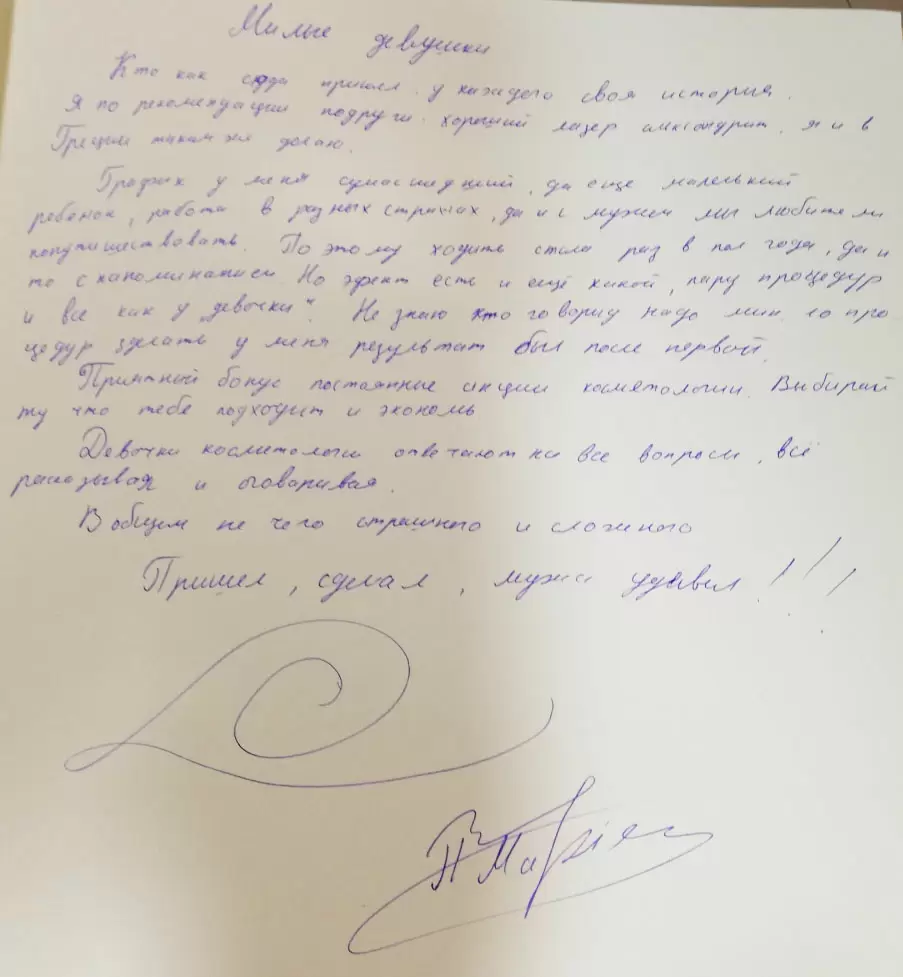 Милые девушки
Кто как сюда пришел. у каждого своя история.
Я по рекомендации подруги. хороший лазер александрит, я и в
Греции таким же делаю.
График у меня сумасшедший, да еще маленький
ребенок, работа в разных странах, да и с мужем мы любители
попутешествовать. По этому ходить стала раз в пол года, да и
то с напоминанием. Но эфект есть и ещё какой, пару процедур
и все как у девочки". Не знаю кто говорид надо мин. 10 про
цедур сделать у меня результат был после первой.
Приятный бонус постоянные акции косметологии. Выбирай
ту что тебе подходит и экономь
Девочки косметологи отвечают на все вопросы, всё
расказывая и оговаривая.
В общем не чего страшного и сложного
Пришел, сделал, мужа удивил!!!